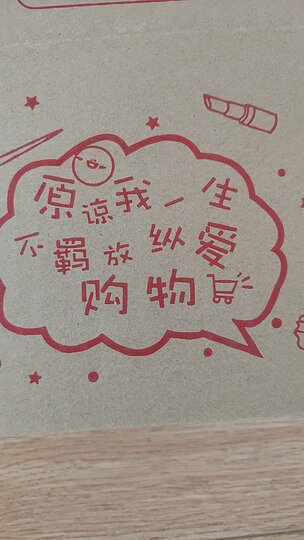 原谅我一生
不羁放纵爱
购物